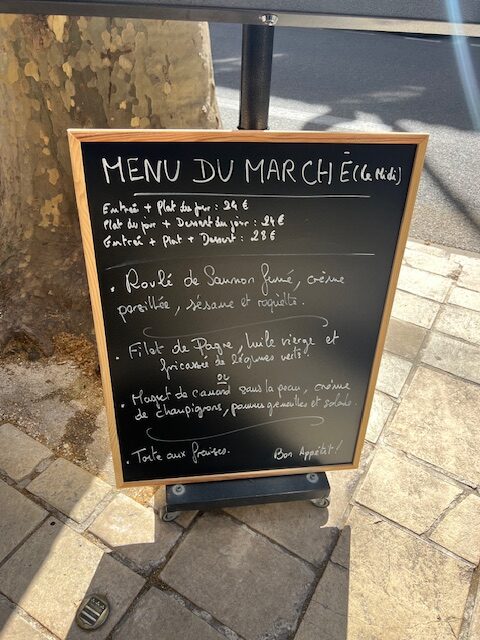 MENU DU MARCHÉ (Le Midi)
Entrée + Plat du jour : 24 €
Plat du jour + Dessert du jour : 24 €
Entrée + Plat + Dessert : 28 €
. Roulé de Saumon fumé, crème
persillée, sésame et roquette.
. Filet de Pagre, huile vierge et
fricassée de légumes verts.
ou
. Magret de canard sans la peau, crème
de champignons, pommes grenailles et salade.
. Tarte aux fraises.
Bon Appétit !